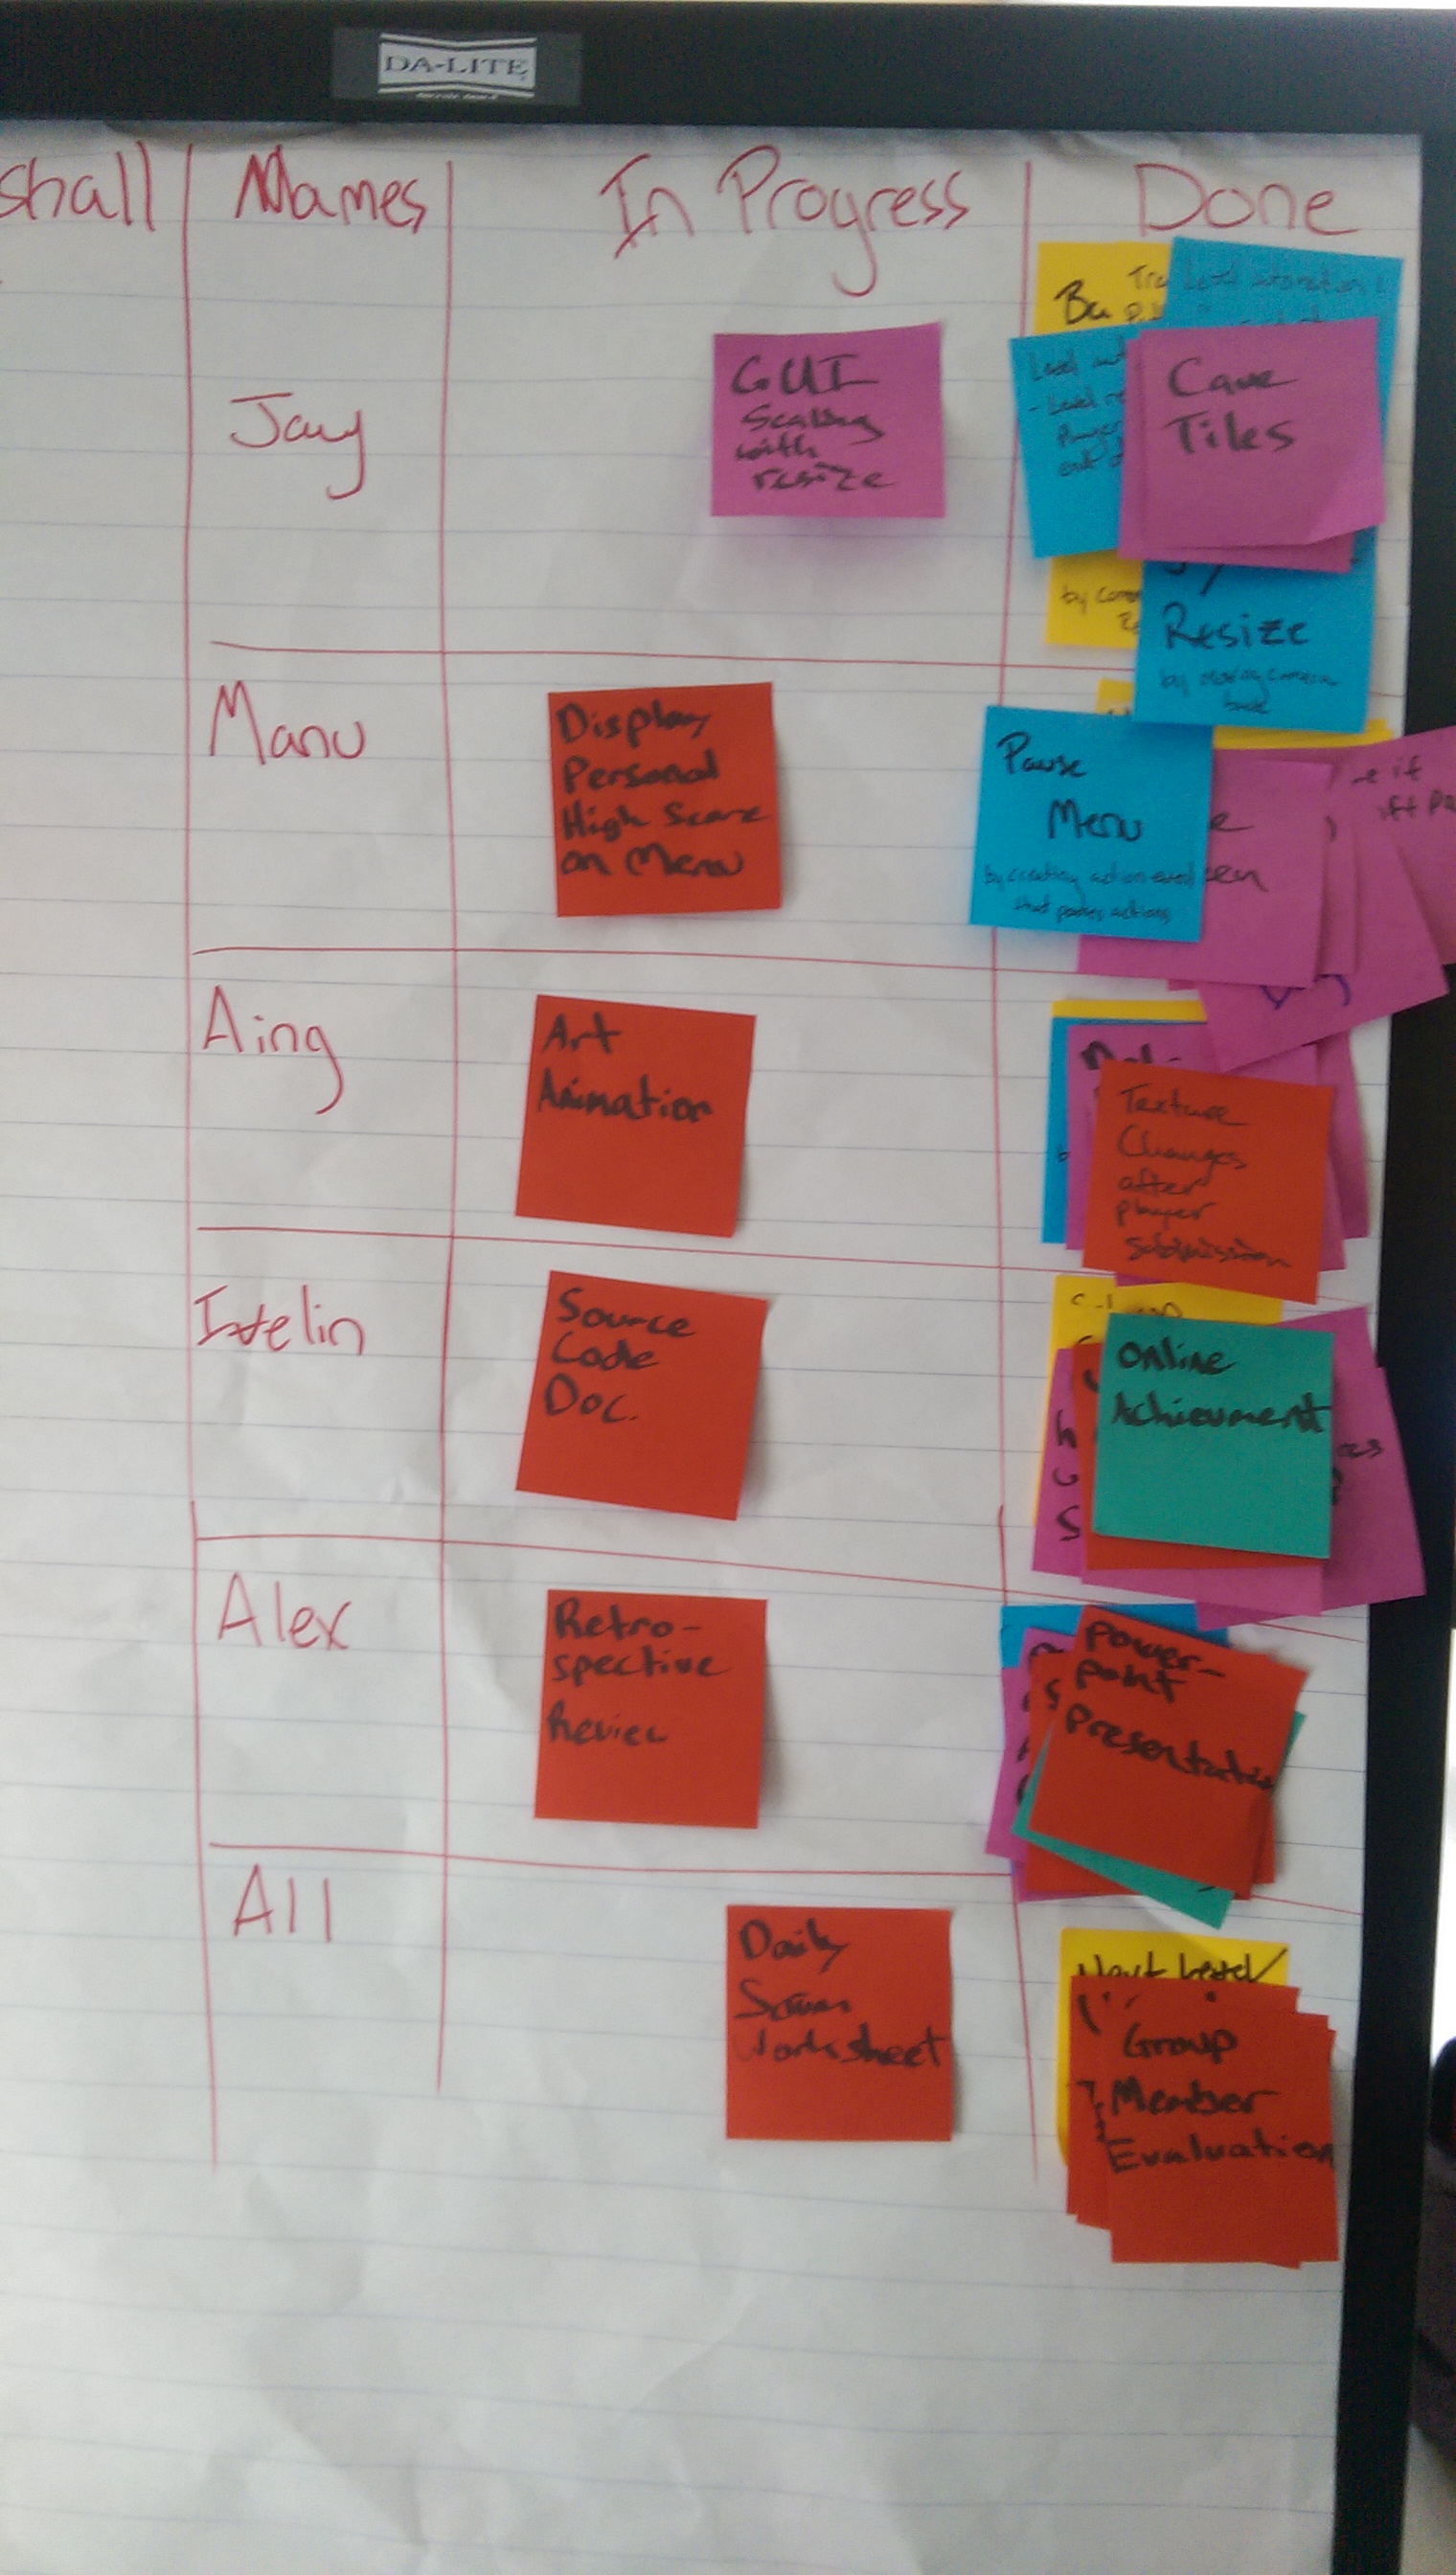 DA-LITE
shall
Names
In Progress
Done
Jay
GUI
Scaling
with
resize
Bu
Tra
Level
- Level re
Player
Cave
Tiles
by
Resize
by moving camera
back
Manu
Display
Personal
High Score
on Menu
Pause
Menu
by creating action event
that pauses actions
e
een
e if
Aing
Art
Animation
Texture
Changes
after
player
submission
Ivelin
Source
Code
Doc.
Online
Achievment
h
S
Alex
Retro-
spective
Review
Power-
point
Presentation
All
Daily
Scrum
Worksheet
Next Level
Group
Member
Evaluation